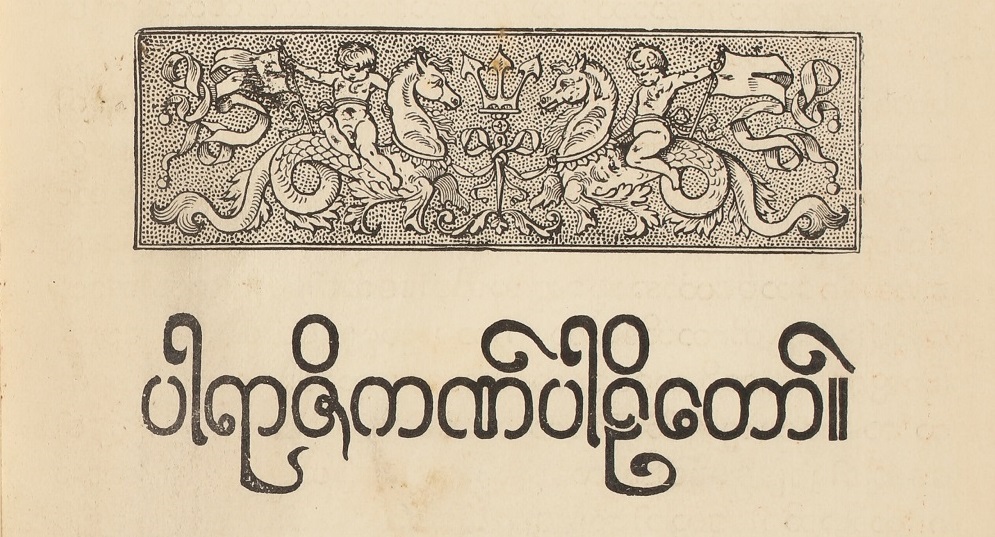 ပါရာဇိကဏ်ပါဠိတော်။